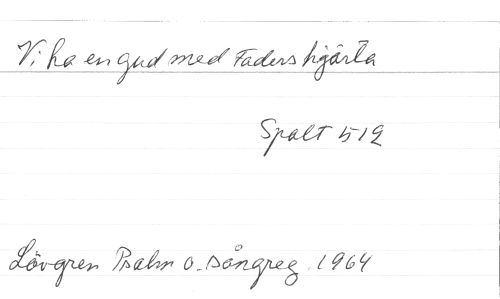 Vi ha en gud med Faders hjärta
Spalt 512
Lövgren Psalm o. sångreg. 1964